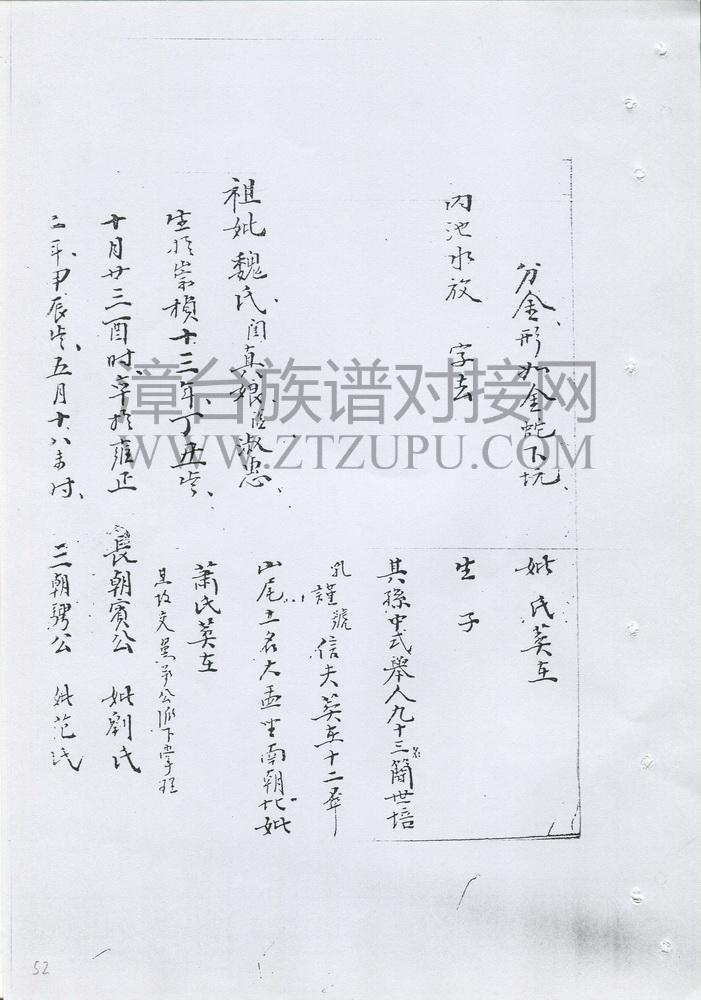 分金形如金蛇下坑
內池水放 字去
祖妣魏氏閨真娘 淑惠
生於崇禎十三年丁丑歲
十月廿三酉时卒於雍正
二年甲辰歲五月十八未时
妣 氏葬在
生子
其孫中式舉人九十三名簡世培
乳謹號信夫葬在十二犟
山尾土名大盂坐南朝北妣
蕭氏葬在
公派下掌理
長朝賓公 妣劉氏
三朝騁公 妣范氏
章台族谱对接网
WWW.ZTZUPU.COM
52